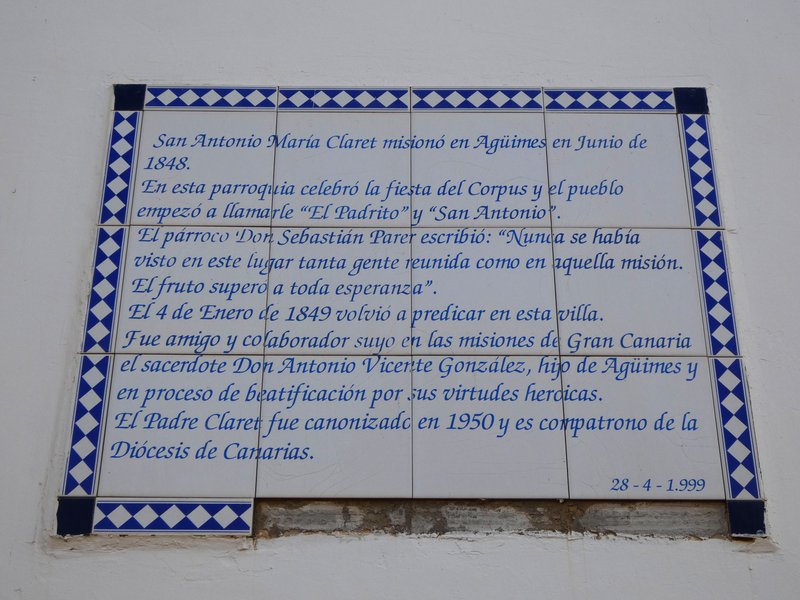 San Antonio María Claret misionó en Agüimes en Junio de
1848.
En esta parroquia celebró la fiesta del Corpus y el pueblo
empezó a llamarle "El Padrito" y "San Antonio".
El párroco Don Sebastián Parer escribió: "Nunca se había
visto en este lugar tanta gente reunida como en aquella misión.
El fruto superó a toda esperanza".
El 4 de Enero de 1849 volvió a predicar en esta villa.
Fue amigo y colaborador suyo en las misiones de Gran Canaria
el sacerdote Don Antonio Vicente González, hijo de Agüimes y
en proceso de beatificación por sus virtudes heroicas.
El Padre Claret fue canonizado en 1950 y es compatrono de la
Diócesis de Canarias.
28 - 4 - 1.999